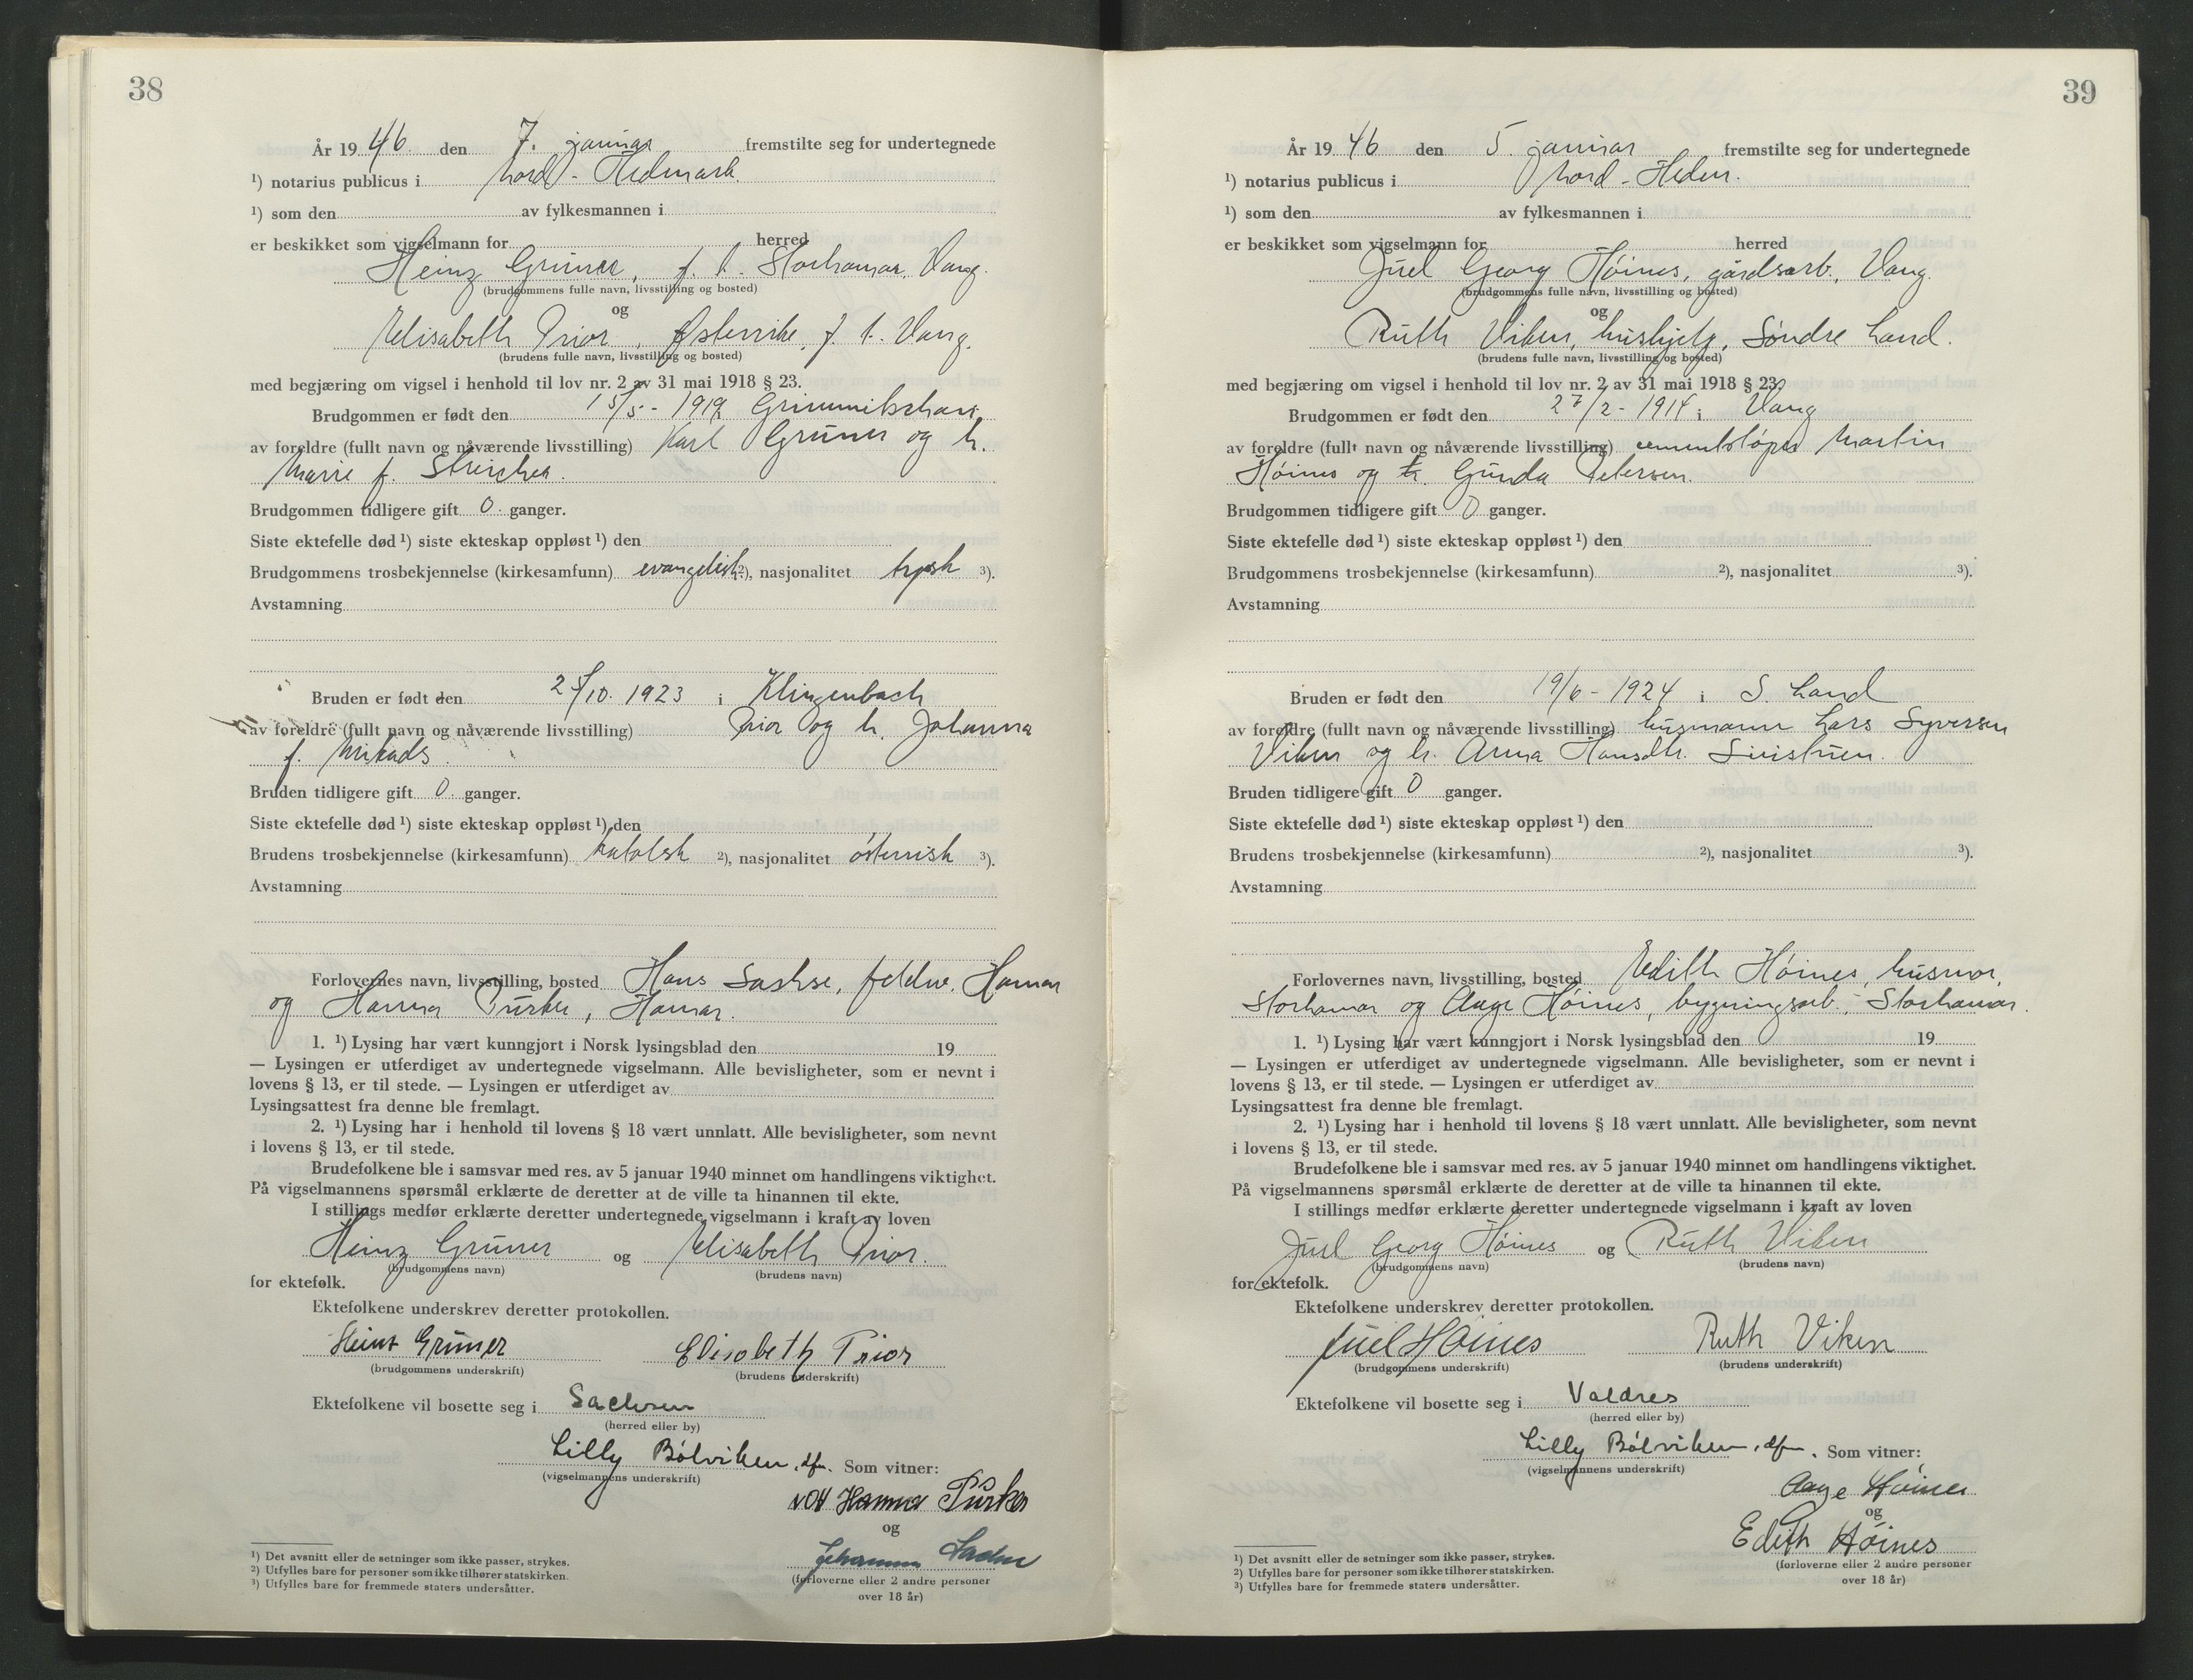 38
År 19 46. den 7. januar fremstilte seg for undertegnede
¹) notarius publicus i Nord - Hedmark.
¹) som den av fylkesmannen i
er beskikket som vigselmann for herred
Heinz Gruner, f. t. Storhamar, Vang.
(brudgommens fulle navn, livsstilling og bosted)
og
Elisabeth Prior, Østerrike, f. t. Vang.
(brudens fulle navn, livsstilling og bosted)
med begjæring om vigsel i henhold til lov nr. 2 av 31 mai 1918 § 23.
Brudgommen er født den 15/5 - 1919
av foreldre (fullt navn og nåværende livsstilling) Karl Gruner og h.
Marie f.
Brudgommen tidligere gift 0 ganger.
Siste ektefelle død ¹) siste ekteskap oppløst ¹) den
Brudgommens trosbekjennelse (kirkesamfunn) evangelisk ²), nasjonalitet tysk ³).
Avstamning
Bruden er født den 25/10. 1923 i Klingenbach
av foreldre (fullt navn og nåværende livsstilling) Prior og h. Johanna
f.
Bruden tidligere gift 0 ganger.
Siste ektefelle død ¹) siste ekteskap oppløst ¹) den
Brudens trosbekjennelse (kirkesamfunn) katolsk ²), nasjonalitet østerrisk ³).
Avstamning
Forlovernes navn, livsstilling, bosted Hans Sachse, feldw. Hamar
og Hanna Pürker, Hamar.
1. ¹) Lysing har vært kunngjort i Norsk lysingsblad den 19
— Lysingen er utferdiget av undertegnede vigselmann. Alle bevisligheter, som er nevnt i
lovens § 13, er til stede. — Lysingen er utferdiget av
Lysingsattest fra denne ble fremlagt.
2. ¹) Lysing har i henhold til lovens § 18 vært unnlatt. Alle bevisligheter, som nevnt
i lovens § 13, er til stede.
Brudefolkene ble i samsvar med res. av 5 januar 1940 minnet om handlingens viktighet.
På vigselmannens spørsmål erklærte de deretter at de ville ta hinannen til ekte.
I stillings medfør erklærte deretter undertegnede vigselmann i kraft av loven
Heinz Gruner og Elisabeth Prior.
(brudgommens navn) (brudens navn)
for ektefolk.
Ektefolkene underskrev deretter protokollen.
Heinz Gruner Elisabeth Prior
(brudgommens underskrift) (brudens underskrift)
Ektefolkene vil bosette seg i Sachsen
(herred eller by)
Lilly Bølviken, dfm. Som vitner:
(vigselmannens underskrift)
Hanna Pürker
og
Johannes Sachse
(forloverne eller 2 andre personer
over 18 år)
¹) Det avsnitt eller de setninger som ikke passer, strykes.
²) Utfylles bare for personer som ikke tilhører statskirken.
³) Utfylles bare for fremmede staters undersåtter.
39
År 19 46 den 5. januar fremstilte seg for undertegnede
¹) notarius publicus i Nord - Hedm.
¹) som den av fylkesmannen i
er beskikket som vigselmann for herred
Juel Georg Høines, gårdsarb., Vang.
(brudgommens fulle navn, livsstilling og bosted)
og
Ruth Viken, hushjelp, Søndre Land.
(brudens fulle navn, livsstilling og bosted)
med begjæring om vigsel i henhold til lov nr. 2 av 31 mai 1918 § 23.
Brudgommen er født den 27/2 - 1914 i Vang
av foreldre (fullt navn og nåværende livsstilling) cementstøper Martin
Høines og h. Gunda Petersen.
Brudgommen tidligere gift 0 ganger.
Siste ektefelle død ¹) siste ekteskap oppløst ¹) den
Brudgommens trosbekjennelse (kirkesamfunn) ²), nasjonalitet ³).
Avstamning
Bruden er født den 19/6 - 1924 i S. Land
av foreldre (fullt navn og nåværende livsstilling) husmann Lars Syversen
Viken og h. Anna Hansdtr. Livistuen.
Bruden tidligere gift 0 ganger.
Siste ektefelle død ¹) siste ekteskap oppløst ¹) den
Brudens trosbekjennelse (kirkesamfunn) ²), nasjonalitet ³).
Avstamning
Forlovernes navn, livsstilling, bosted Edith Høines, husmor,
Storhamar og Aage Høines, bygningsarb., Storhamar.
1. ¹) Lysing har vært kunngjort i Norsk lysingsblad den 19
— Lysingen er utferdiget av undertegnede vigselmann. Alle bevisligheter, som er nevnt i
lovens § 13, er til stede. — Lysingen er utferdiget av
Lysingsattest fra denne ble fremlagt.
2. ¹) Lysing har i henhold til lovens § 18 vært unnlatt. Alle bevisligheter, som nevnt
i lovens § 13, er til stede.
Brudefolkene ble i samsvar med res. av 5 januar 1940 minnet om handlingens viktighet.
På vigselmannens spørsmål erklærte de deretter at de ville ta hinannen til ekte.
I stillings medfør erklærte deretter undertegnede vigselmann i kraft av loven
Juel Georg Høines og Ruth Viken
(brudgommens navn) (brudens navn)
for ektefolk.
Ektefolkene underskrev deretter protokollen.
Juel Høines Ruth Viken
(brudgommens underskrift) (brudens underskrift)
Ektefolkene vil bosette seg i Valdres
(herred eller by)
Lilly Bølviken, dfm. Som vitner:
(vigselmannens underskrift)
Aage Høines
og
Edith Høines
(forloverne eller 2 andre personer
over 18 år)
¹) Det avsnitt eller de setninger som ikke passer, strykes.
²) Utfylles bare for personer som ikke tilhører statskirken.
³) Utfylles bare for fremmede staters undersåtter.